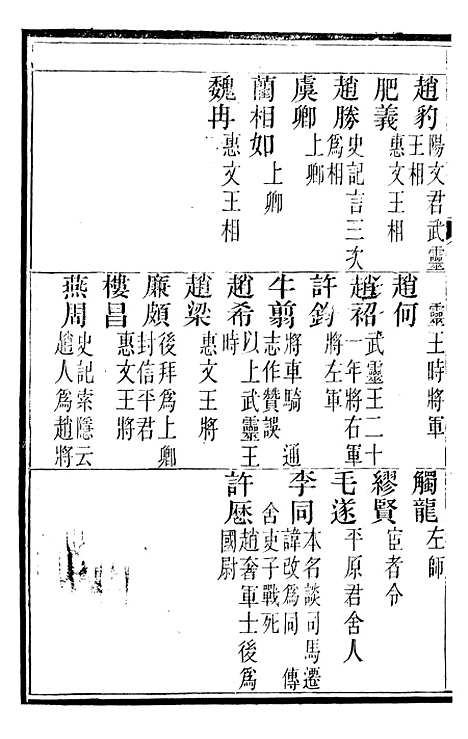 趙豹陽文君武靈王相
肥義惠文王相
趙勝史記言三次爲相
虞卿上卿
藺相如上卿
魏冉惠文王相
趙何靈王時將軍
趙袑武靈王二十一年將右軍
許鈞將左軍
牛翦將車騎通志作贊誤
趙希以上武靈王時
趙梁惠文王將
廉頗後拜爲上卿封信平君
樓昌惠文王將
燕周史記索隱云趙人爲趙將
觸龍左師
繆賢宦者令
毛遂平原君舍人
李同本名談司馬遷諱改爲同傳舍吏子戰死
許歷趙奢軍士後爲國尉